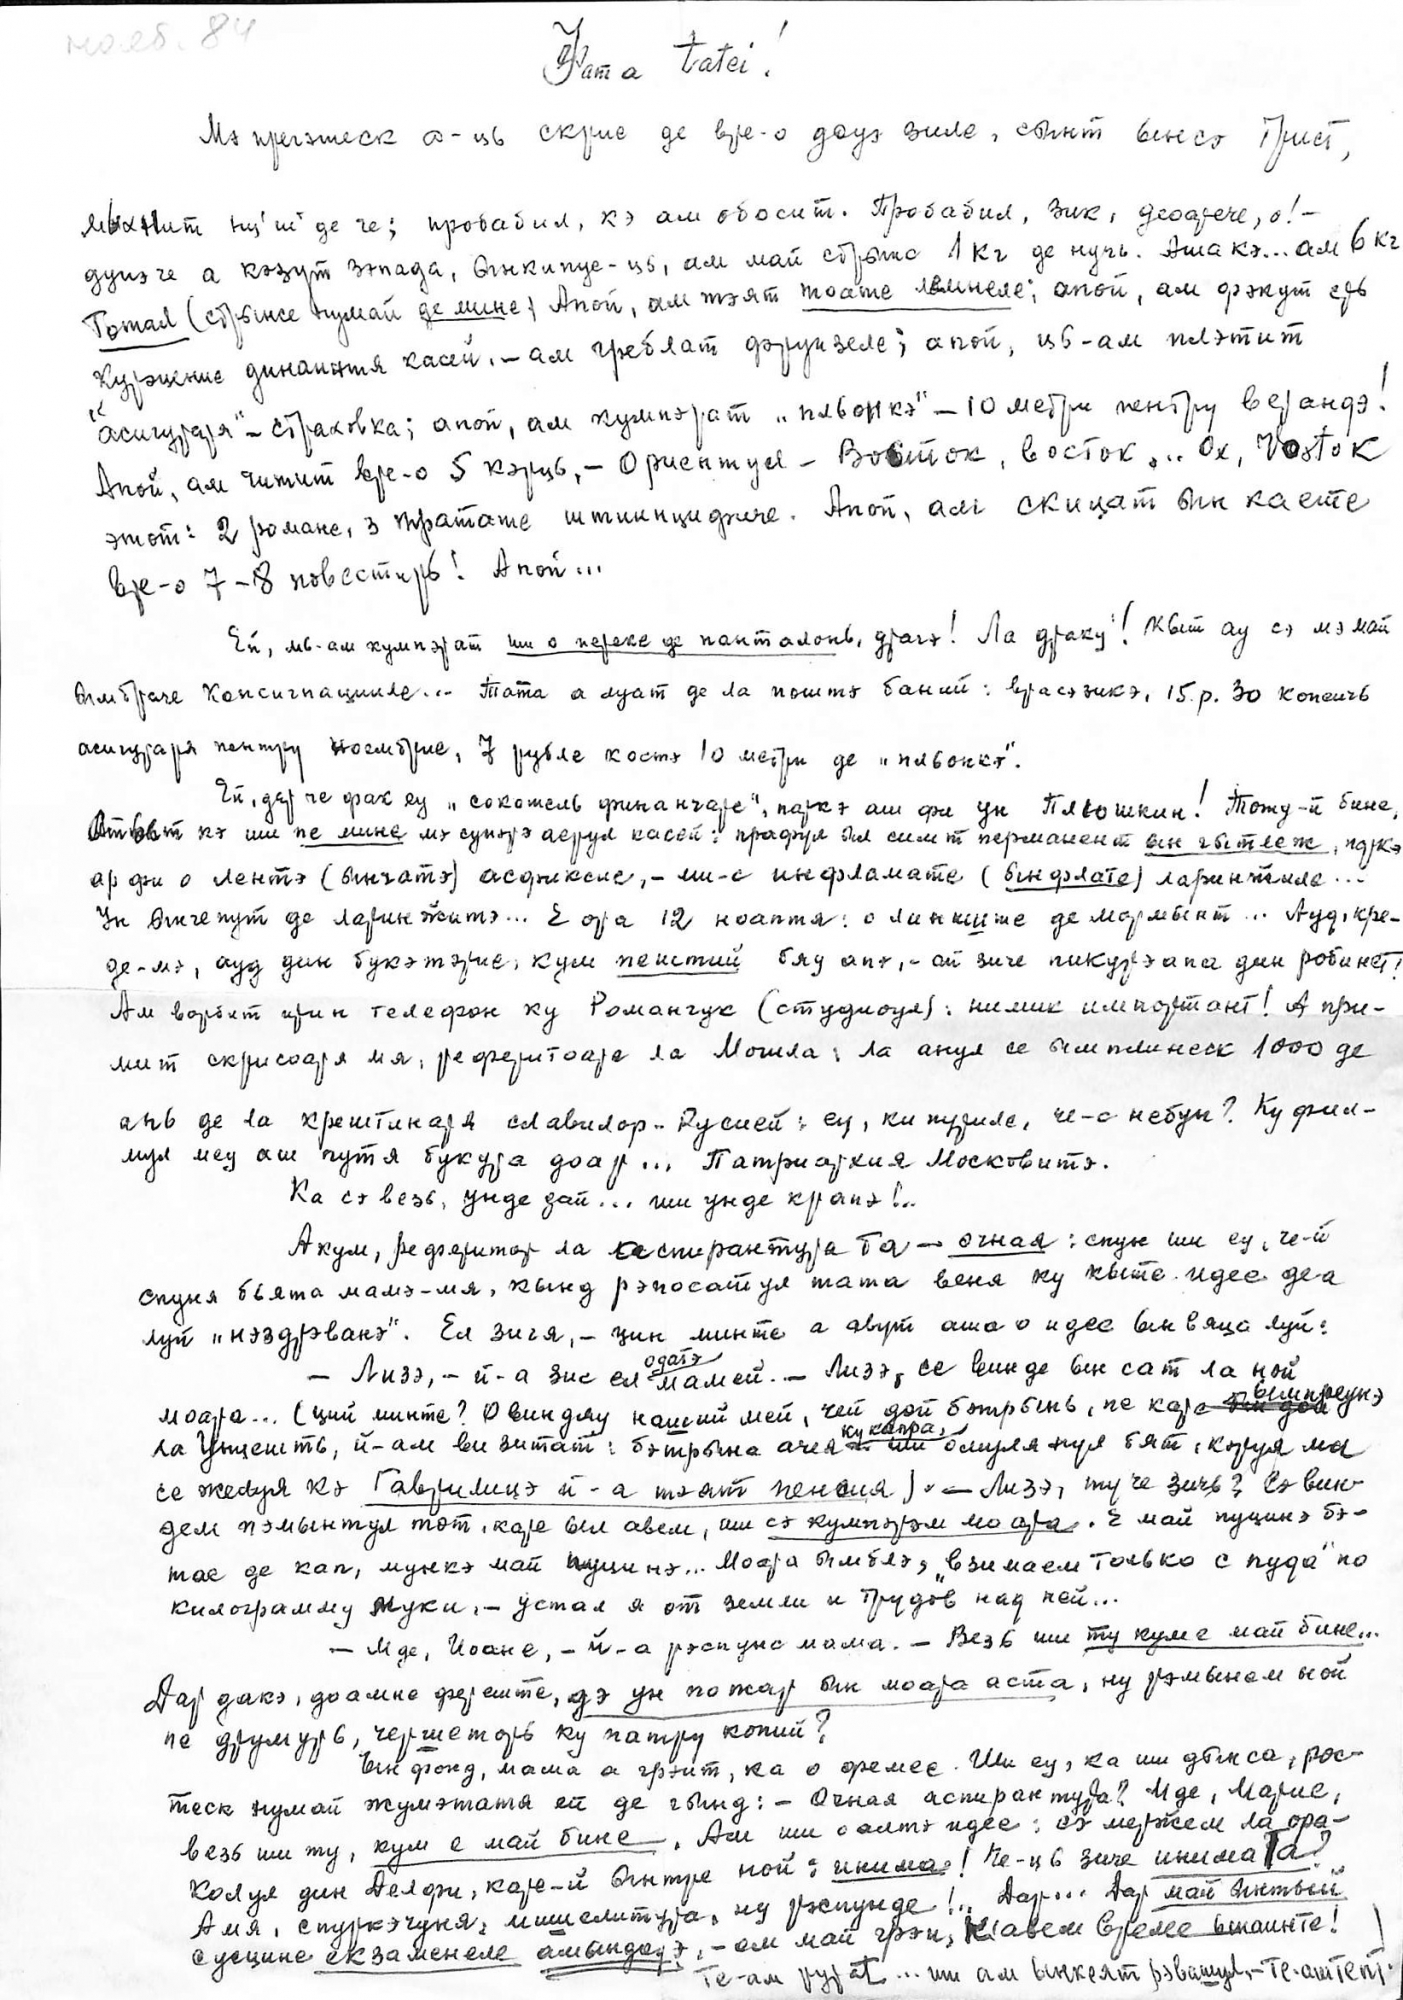 нояб. 84
Фата tatei!
Мэ прегэтеск а-ць скрие де вре-о доуэ зиле, сынт ынсэ трист,
мыхнит нуш' де че; пробабил, кэ ам обосит. Пробабил, зик, деоарече, о! –
дупэ че а кэзут зэпада, ынкипуе-ць, ам май стрынс 1 кг де нучь. Аша кэ... ам 6 кг
Тотал (стрынсе нумай де мине) Апой, ам тэят тоате лемнеле; апой, ам фэкут
курэцение динаинтя касей, – ам греблат фрунзеле; апой, ць-ам плэтит
"асигураря" – страховка; апой, ам кумпэрат „пльонкэ" – 10 метри пентру верандэ!
Апой, ам читит вре-о 5 кэрць, – Ориентул – Восток, восток... Ох, Vostok
этот: 2 романе, 3 тратате штиинцифиче. Апой, ам скицат ын каете
вре-о 7–8 повестирь! Апой...
Ей, мь-ам кумпэрат ши о переке де панталонь, драгэ! Ла драку! Кыт ау сэ мэ май
ымбраче Консигнацииле... Тата а луат де ла поштэ баний: врасэзикэ, 15 р. 30 копеичь
асигураря пентру ноембрие, 7 рубле костэ 10 метри де „пльонкэ".
Ей, дар че фак еу „сокотель финанчаре", паркэ аш фи ун Плюшкин! Тоту-й бине,
Атыт кэ ши пе мине мэ супэрэ аерул касей: прафул ыл симт перманент ын гытлеж, паркэ
ар фи о лентэ (ынчатэ) асфиксие, – ми-с инфламате (ынфлате) ларинжиле...
Ун ынчепут де ларинжитэ... Е ора 12 ноаптя: о линиште де мормынт... Ауд, кре-
де-мэ, ауд дин букэтэрие, кум пештий бяу апэ, – ай зиче пикурэ апа дин робинет!
Ам ворбит прин телефон ку Романчук (студиоул): нимик импортант! А при-
мит скрисоаря мя, реферитоаре ла Могила: ла анул се ымплинеск 1000 де
ань де ла крештинаря славилор – Русией: еу, ки пуриле, че-с небун? Ку фил-
мул меу аш путя букура доар... Патриархия Московитэ.
Ка сэ везь, унде зай... ши унде крапэ!..
Акум, реферитор ла аспирантура Та – очная: спун ши еу, че-й
спуня бьята мамэ-мя, кынд рэпосатул тата веня ку кыте-идее де а
луй „нэздрэванэ". Ел зичя, – цин минте а авут аша о идее ын вяца луй:
– Лизэ, – й-а зис ел одатэ мамей. – Лизэ, се винде ын сат ла ной
моара... (ций минте? О виндяу наший мей, чей дой бэтрынь, пе каре ымпреунэ
ла Унцешть, й-ам визитат: бэтрына ачея ку капра, ши омуля нул бят, кэруя ма
се желуя кэ Гаврилицэ й-а тэят пенсия). – Лизэ, ту че зичь? Сэ вин-
дем пэмынтул тот, каре ыл авем, ши сэ кумпэрэм моара. Е май пуцинэ бэ-
тае де кап, мункэ май пуцинэ... Моара ымблэ, „взимаем только с пуда" по
килограмму муки, – устал я от земли и трудов над ней...
– Мде, Иоане, – й-а рэспунс мама. – Везь ши ту кум е май бине...
Дар дакэ, доамне ферeште, дэ ун пожар ын моара аста, ну рэмынем ной
пе друмурь, чершеторь ку патру копий?
Ын фонд, мама а грэит, ка о фемее. Ши еу, ка ши дынса, рос-
теск нумай жумэтатя ей де гынд: – Очная аспирантура? Мде, Марие,
везь ши ту, кум е май бине. Ам ши о алтэ идее: сэ мержем ла ора-
колул дин Делфи, каре-й ынтре ной: инима! Че-ць зиче инимаТа?
А мя, спуркэчуня, мишелитура, ну рэспунде!.. Дар... Дар май ынтый
сусцине екзаменеле амындоуэ, – ом май грэи, Кавем време ынаинте!
Те-ам ругат... ши ам ынкеят рэвашул, – Те-аштепт.